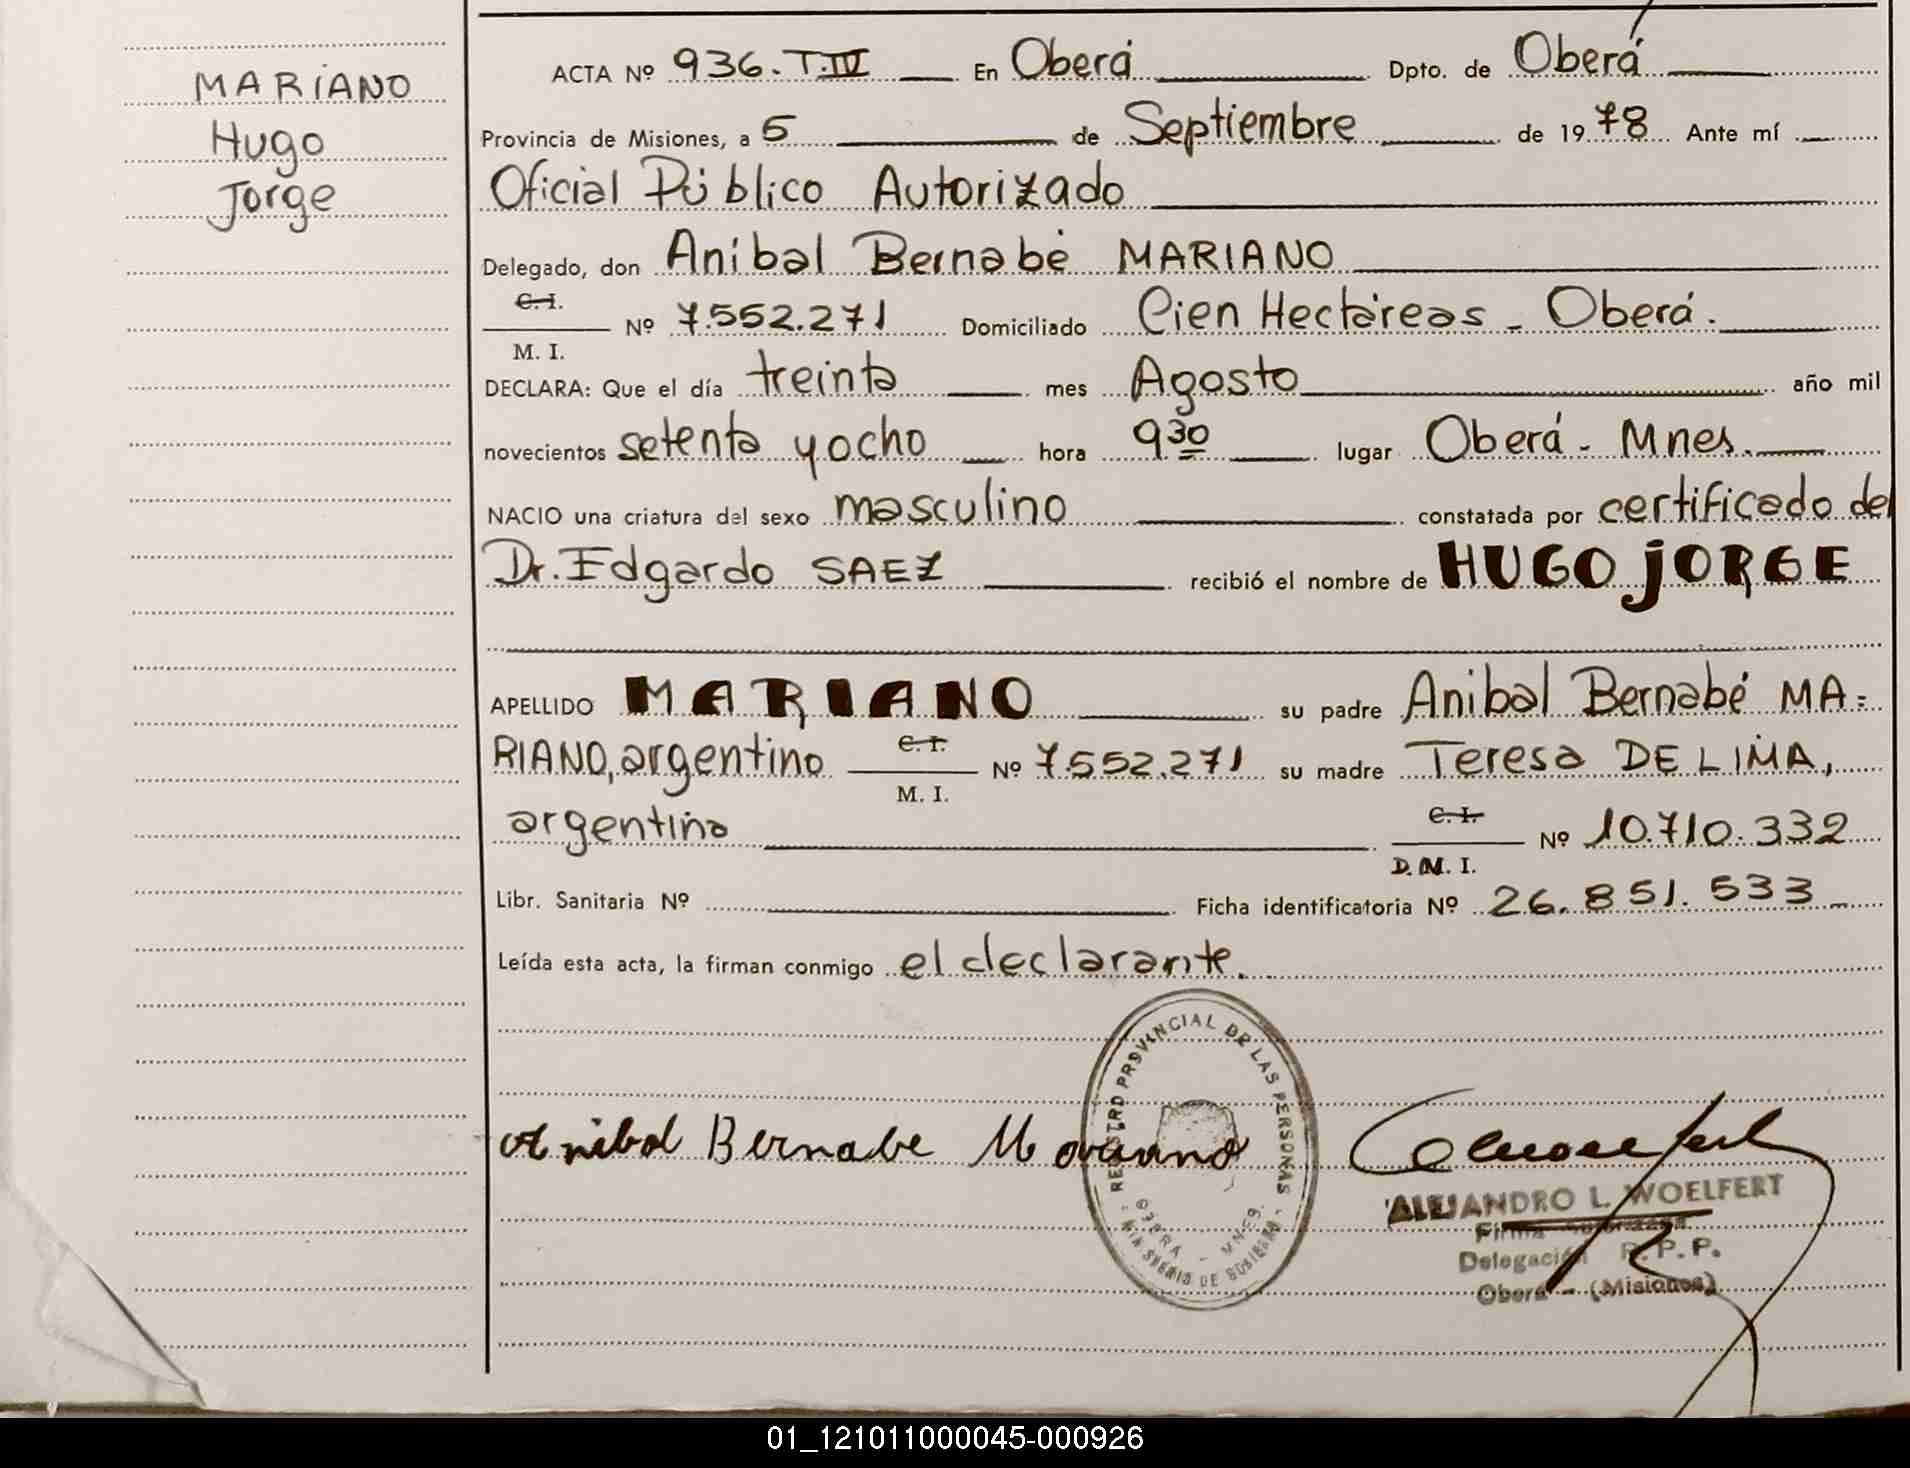 MARIANO
Hugo
Jorge
ACTA Nº 936.T.IV En Oberá Dpto. de Oberá
Provincia de Misiones, a 5 de Septiembre de 1978 Ante mí
Oficial Público Autorizado
Delegado, don Aníbal Bernabé MARIANO
C.I.
M. I. Nº 7.552.271 Domiciliado Cien Hectáreas - Oberá.
DECLARA: Que el día treinta mes Agosto año mil
novecientos setenta y ocho hora 9.30 lugar Oberá - Mnes.
NACIO una criatura del sexo masculino constatada por certificado del
Dr. Edgardo SAEZ recibió el nombre de HUGO JORGE
APELLIDO MARIANO su padre Anibal Bernabé MA=
RIANO, argentino C.I. M. I. Nº 7.552.271 su madre Teresa DE LIMA,
argentina C.I. D.M. I. Nº 10.710.332
Libr. Sanitaria Nº Ficha identificatoria Nº 26.851.533
Leída esta acta, la firman conmigo el declarante.
REGISTRO PROVINCIAL DE LAS PERSONAS
OBERA - MNES.
MINISTERIO DE GOBIERNO
Anibal Bernabe Mariano
ALEJANDRO L. WOELFERT
Firma Autorizada
Delegación R.P.P.
Oberá - (Misiones)
01_121011000045-000926